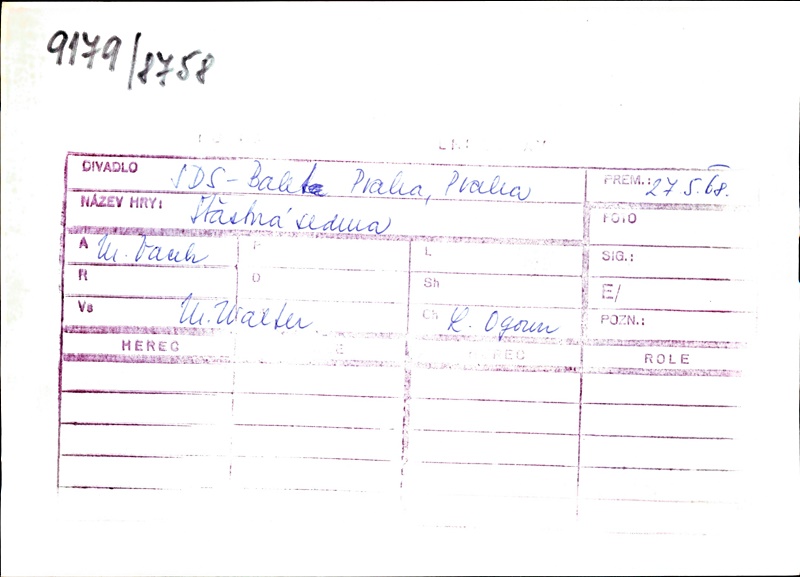 9179/8758
DIVADLO SDS-Balet Praha, Praha PREM.: 27 5. 68.
NÁZEV HRY: Šťastná sedma FOTO
A M. Vacek P L SIG.:
R D Sh E/
Vs M. Walter Ch L. Ogoun POZN.:
HEREC E EC ROLE